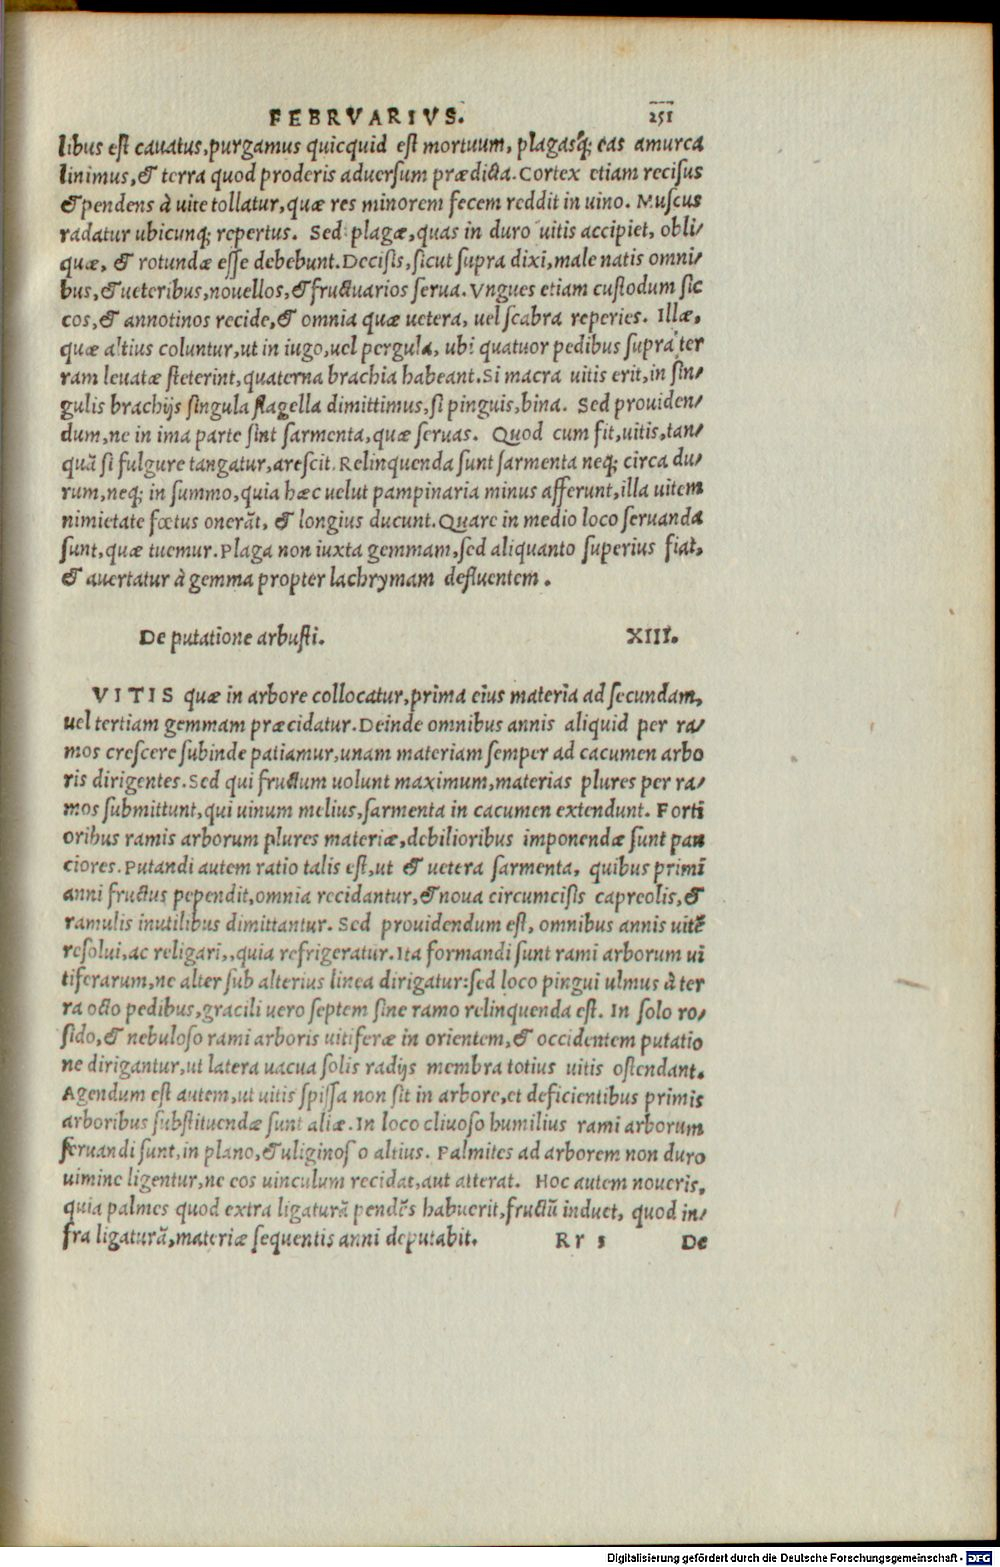 FEBRVARIVS. 251
libus est cauatus, purgamus quicquid est mortuum, plagasq; eas amurca
linimus, & terra quod proderis aduersum prædicta. Cortex etiam recisus
& pendens à uite tollatur, quæ res minorem fecem reddit in uino. Muscus
radatur ubicunq; repertus. Sed plagæ, quas in duro uitis accipiet, obli/
quæ, & rotundæ esse debebunt. Decisis, sicut supra dixi, male natis omni/
bus, & ueteribus, nouellos, & fructuarios serua. Vngues etiam custodum sic
cos, & annotinos recide, & omnia quæ uetera, uel scabra reperies. Illæ,
quæ altius coluntur, ut in iugo, uel pergula, ubi quatuor pedibus supra ter
ram leuatæ steterint, quaterna brachia habeant. Si macra uitis erit, in sin/
gulis brachijs singula flagella dimittimus, si pinguis, bina. Sed prouiden/
dum, ne in ima parte sint sarmenta, quæ seruas. Quod cum fit, uitis, tan/
quā si fulgure tangatur, arescit. Relinquenda sunt sarmenta neq; circa du/
rum, neq; in summo, quia hæc uelut pampinaria minus afferunt, illa uitem
nimietate fœtus onerāt, & longius ducunt. Quare in medio loco seruanda
sunt, quæ tuemur. Plaga non iuxta gemmam, sed aliquanto superius fiat,
& auertatur à gemma propter lachrymam defluentem.
De putatione arbusti. XIII.
VITIS quæ in arbore collocatur, prima eius materia ad secundam,
uel tertiam gemmam præcidatur. Deinde omnibus annis aliquid per ra/
mos crescere subinde patiamur, unam materiam semper ad cacumen arbo
ris dirigentes. Sed qui fructum uolunt maximum, materias plures per ra/
mos submittunt, qui uinum melius, sarmenta in cacumen extendunt. Forti
oribus ramis arborum plures materiæ, debilioribus imponendæ sunt pau
ciores. Putandi autem ratio talis est, ut & uetera sarmenta, quibus primi
anni fructus pependit, omnia recidantur, & noua circumcisis capreolis, &
ramulis inutilibus dimittantur. Sed prouidendum est, omnibus annis uitē
resolui, ac religari,, quia refrigeratur. Ita formandi sunt rami arborum ui
tiferarum, ne alter sub alterius linea dirigatur: sed loco pingui ulmus à ter
ra octo pedibus, gracili uero septem sine ramo relinquenda est. In solo ro/
sido, & nebuloso rami arboris uitiferæ in orientem, & occidentem putatio
ne dirigantur, ut latera uacua solis radijs membra totius uitis ostendant.
Agendum est autem, ut uitis spissa non sit in arbore, et deficientibus primis
arboribus substituendæ sunt aliæ. In loco cliuoso humilius rami arborum
seruandi sunt, in plano, & uliginos o altius. Palmites ad arborem non duro
uimine ligentur, ne eos uinculum recidat, aut atterat. Hoc autem noueris,
quia palmes quod extra ligaturā pendēs habuerit, fructū induet, quod in/
fra ligaturā, materiæ sequentis anni deputabit. Rr 5 De
Digitalisierung gefördert durch die Deutsche Forschungsgemeinschaft - DFG